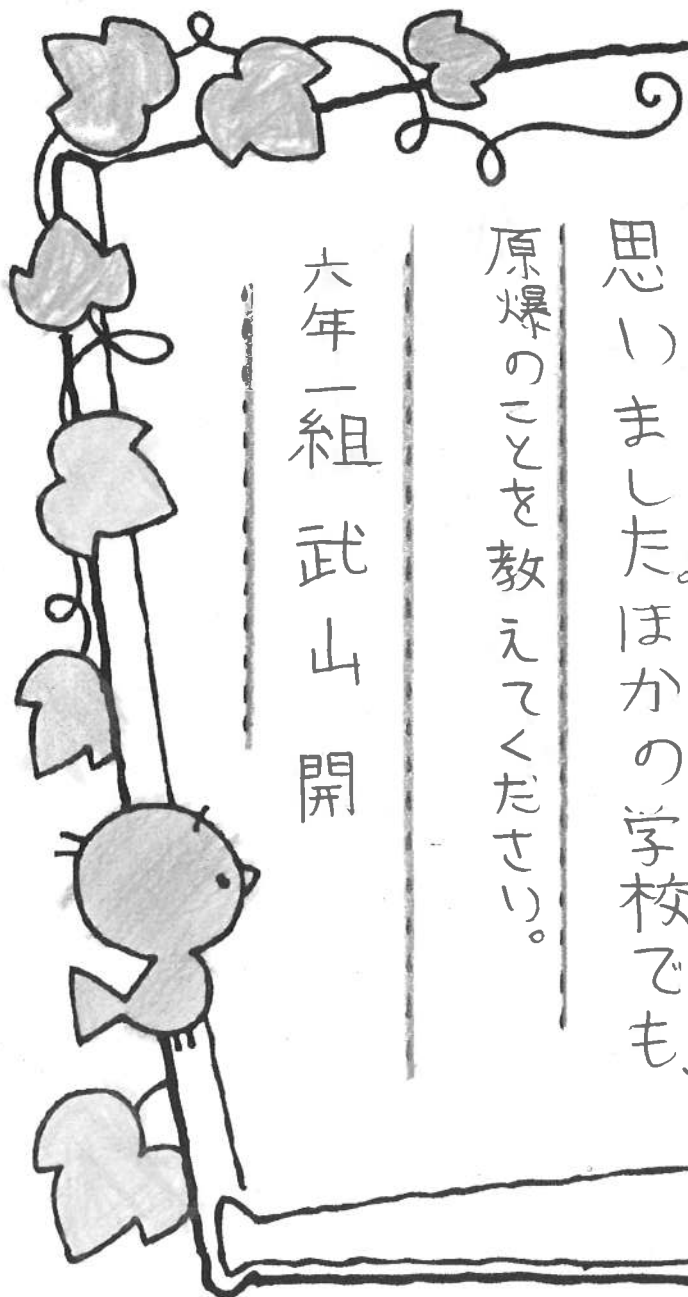 思いました。ほかの学校でも、
原爆のことを教えてください。
六年一組 武山開